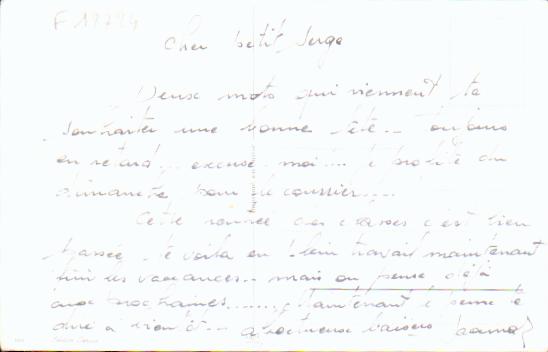 F 19794
Cher petit Serge
Deux mots qui viennent te
souhaiter une bonne fête... toujours
en retard... excuse moi.... je profite du
dimanche pour le courrier.....
Cette rentrée des classes c'est bien
passée te voila en plein travail maintenant
fini les vacances... mais on pense déjà
aux prochaines....... maintenant je pense te
dire à bientôt... affectueux baisers